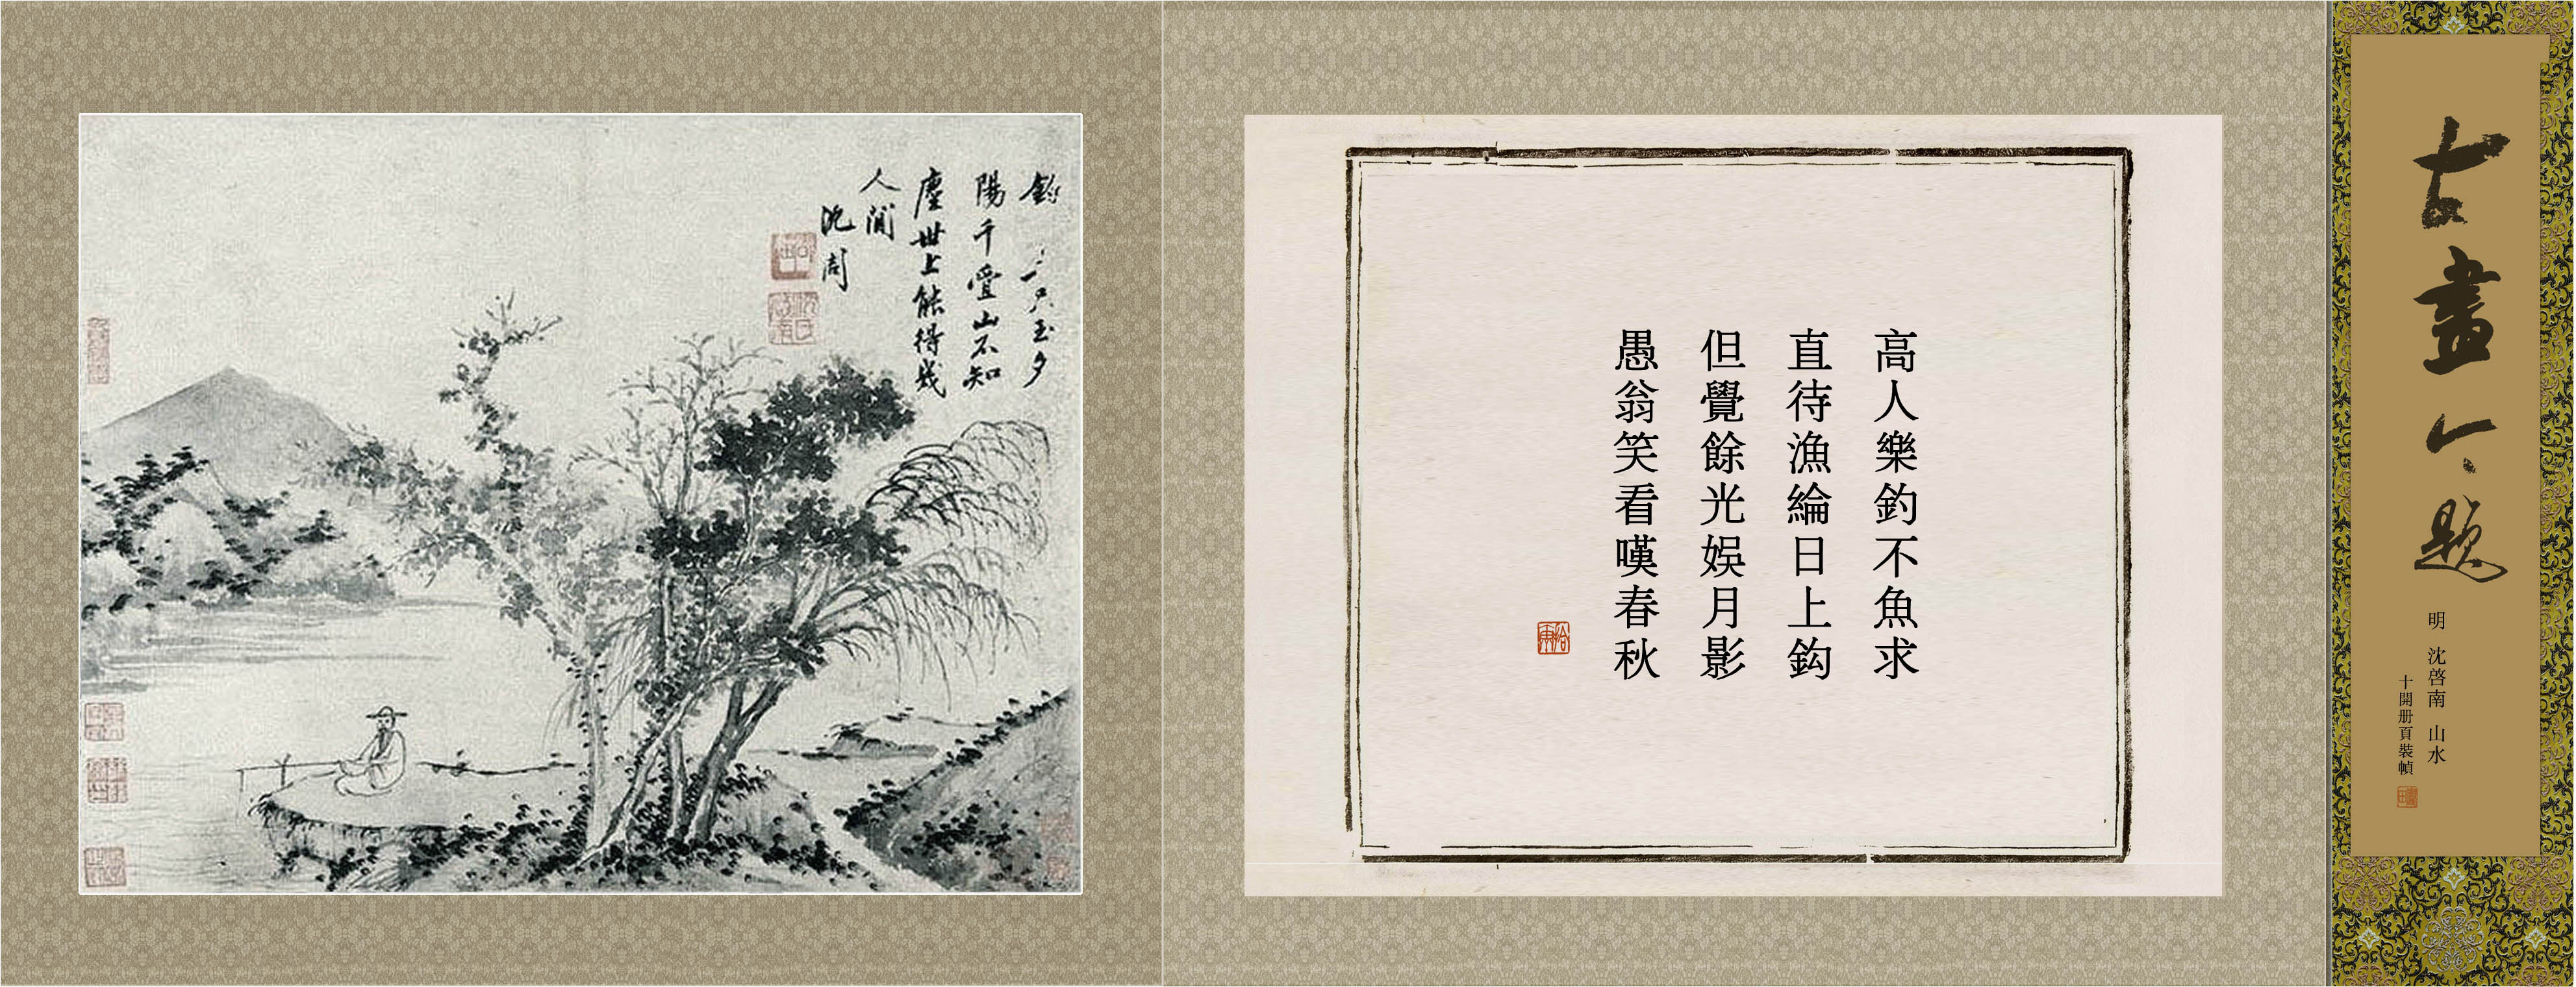 古畫今題
明 沈啓南 山水
十開册頁裝幀
高人樂釣不魚求
直待漁綸日上鈎
但覺餘光娛月影
愚翁笑看嘆春秋
釣 玉夕
陽千疊山不知
塵世上能得幾
人閒
沈周